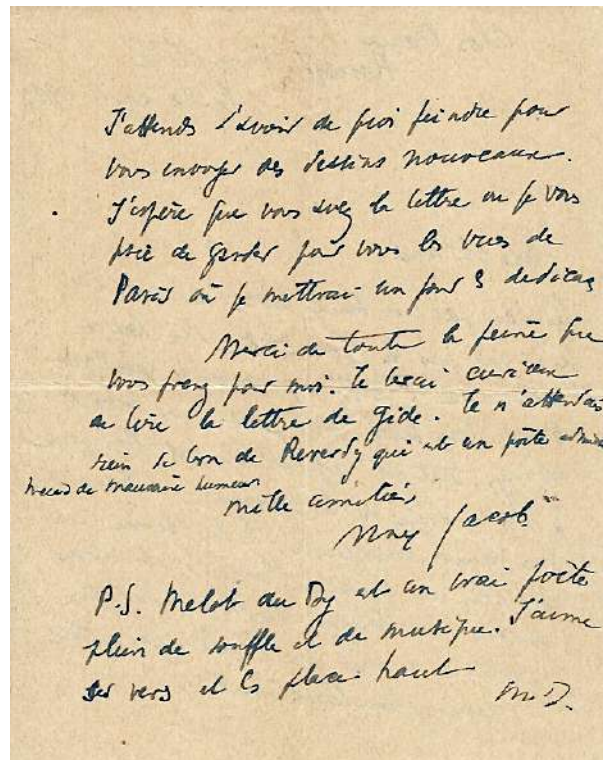 J'attends d'avoir de quoi peindre pour
vous envoyer des dessins nouveaux.
J'espère que vous avez la lettre où je vous
prie de garder pour vous les vues de
Paris où je mettrai un jour 3 dédicaces
Merci de toute la peine que
vous prenez pour moi. Je serai curieux
de lire la lettre de Gide. Je n'attendais
rien de bon de Reverdy qui est un poète
de mauvaise humeur
mille amitiés
Max Jacob
P.S. Melot du Dy est un vrai poète
plein de souffle et de musique. J'aime
ses vers et les place haut
M. J.